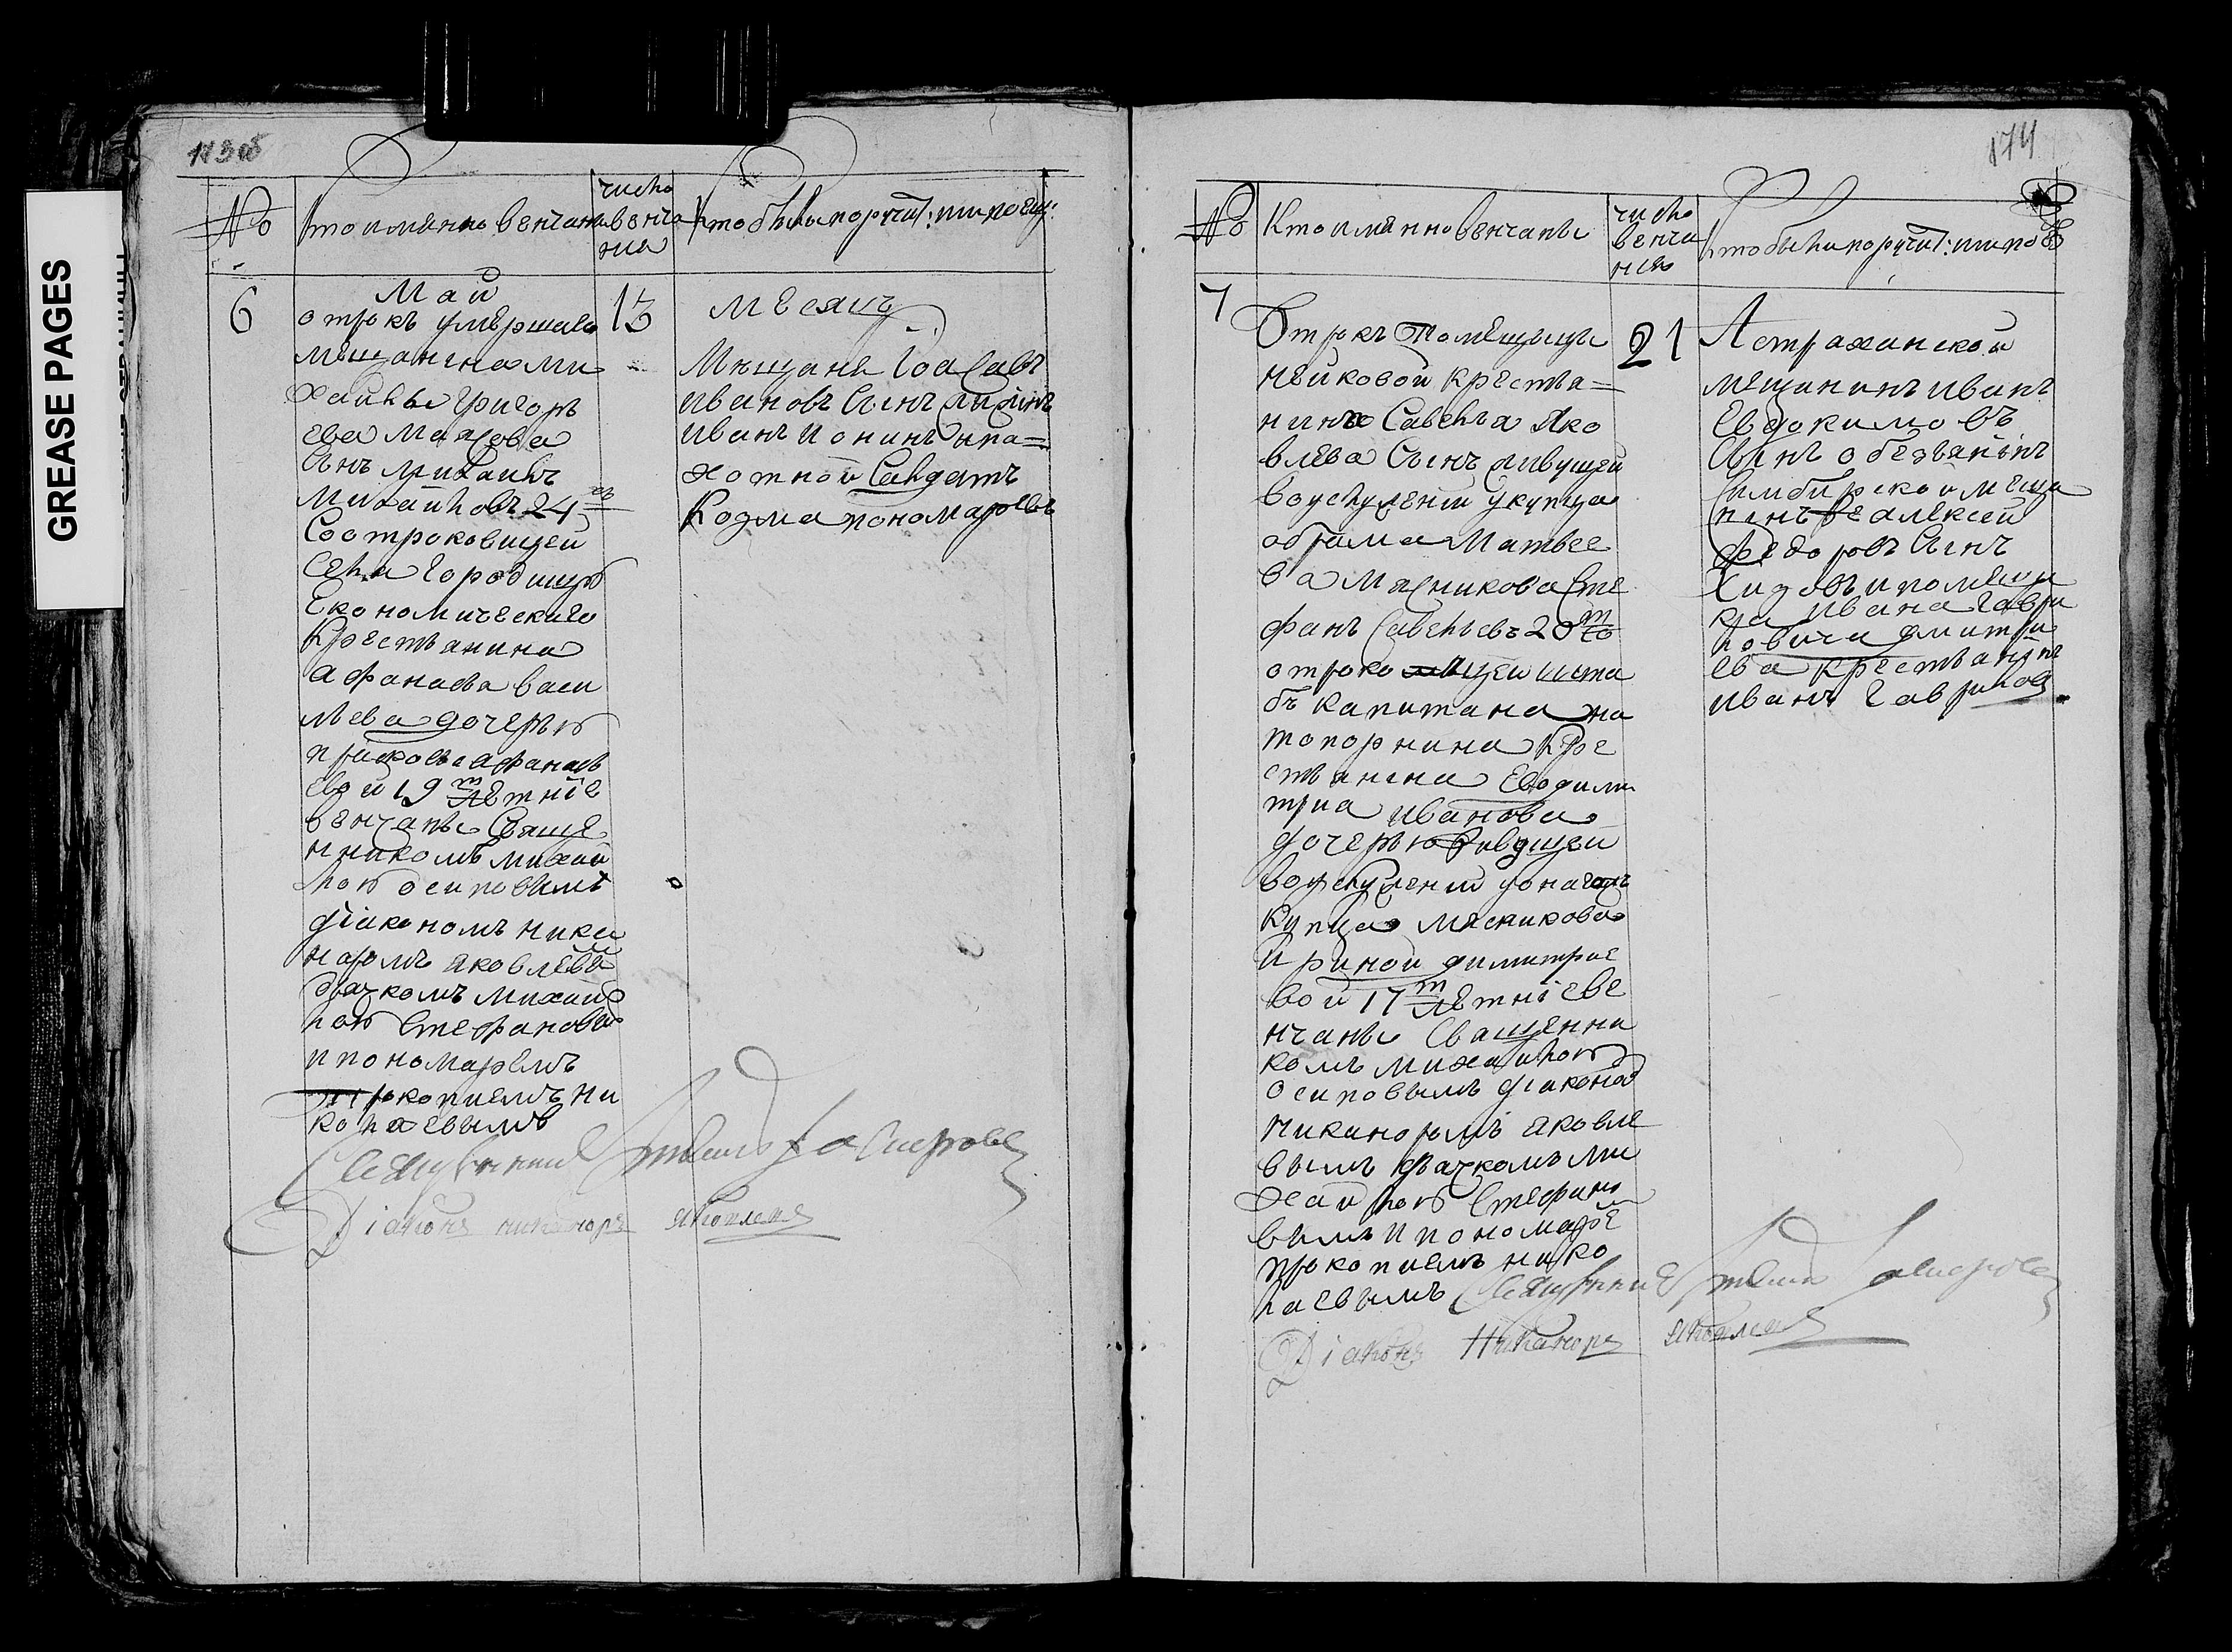 GREASE PAGES
174
№
Кто имянно венчаны
число
венча
ния
Кто были поручит: или поезж:
6
Май
13
месяцъ
отрокъ умершаго
мещанина ми
хайлы григорь
ева
Сынъ михаилъ
михайловъ 24
Соотроковицей
Села Городищъ
Економическаго
Крестьянина
афанасья васи
льева дочерью
афанась
евой 19 т летніе
венчаны Свяще
нникомъ михай
лою осиповымъ
діакономъ ника
норомъ яковлевы
дьячкомъ михай
лою Стефановы
и пономаремъ
прокопиемъ ни
колаевымъ
Мещане
ивановъ Сынъ
иванъ ионинъ ипа=
хотной Салдатъ
Козма пономаревъ
Священник
Діаконъ никаноръ яковлевъ
№
Кто имянно венчаны
число
венча
ния
Кто были поручит: или поез
7
21
Отрокъ Помещицы
крестья=
нина Савелья Яко
влева Сынъ живущей
воуслужении укупца
абрама Матвее
ва Мясникова Сте
фанъ Савельевъ 20 т
отроковицей шта
бъ капитана на
топорнина кре
стьянина Евдоким
Иванова
дочерью живущей
воуслужении уонагожъ
купца мясникова
Ириной димитрие
вой 17 т летніе ве
нчаны Священни
комъ михайлою
осиповымъ діконом
никаноромъ яковле
вымъ дьячкомъ ми
хайлою Стефано
вымъ и пономаре
прокопиемъ нико
лаевымъ
Астраханской
мещанинъ иванъ
Евдокимовъ
Сынъ
Симбирской меща
нинъ алексей
федоровъ Сынъ
и помещи
ка ивана гаври
ловича дмитри
ева крестьянинъ
иванъ гавриловъ
Священник
Діаконъ Никаноръ яковлевъ